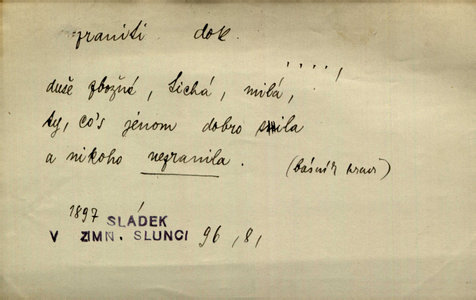 zraniti dok.
. . . . ,
duše zbožné, tichá, milá,
ty, co's jenom dobro snila
a nikoho nezranila. (básník
1897 SLÁDEK
V ZIMN. SLUNCI 96, 8,